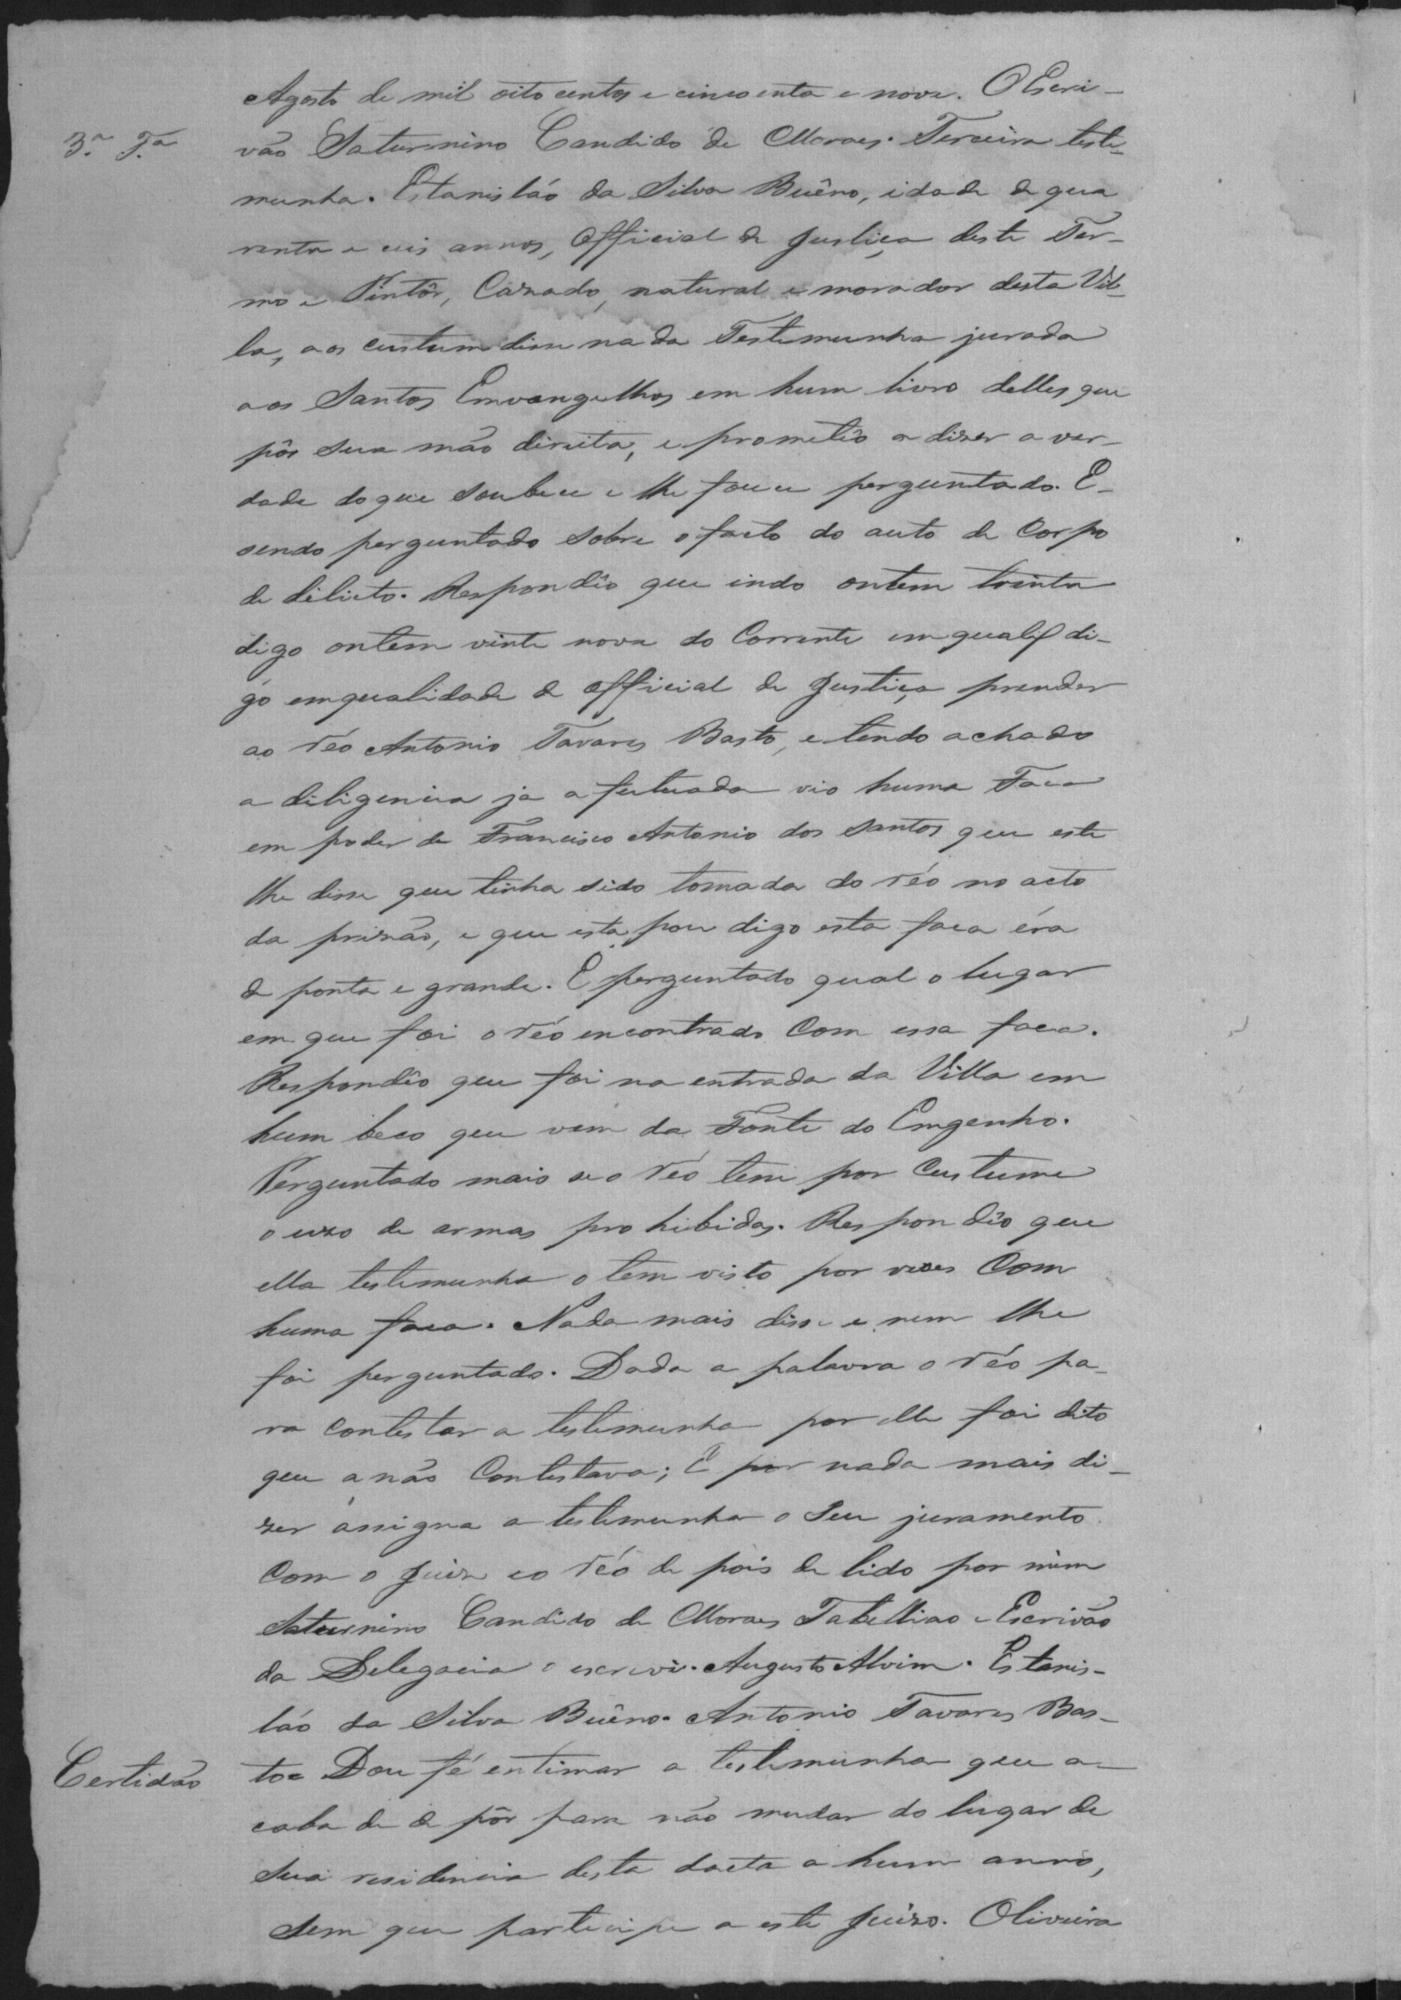 Agosto de mil oito centos e cincoenta e nove. O Escri-
3.ª T.ª
vão Saturnino Candido de Moraes. Terceira teste-
munha. Estanisláo da Silva Buêno, idade de qua
renta e seis annos, Official de Justiça deste Ter-
mo e Pintôr, Cazado, natural e morador desta Vil-
la, aos custume disse nada Testemunha jurada
aos Santos Emvangelhos em hum livro delles que
pôs sua mão direita, e prometêo a dizer a ver-
dade do que soubece e lhe foce perguntado. E-
sendo perguntado sobre o facto do auto de Corpo
de delicto. Respondêo que indo ontem trinta
digo ontem vinte nove do Corrente em qualid di-
go em qualidade de official de Justiça prender
ao réo Antonio Tavares Basto, e tendo achado
a diligencia ja afectuada vio huma Faca
em poder de Francisco Antonio dos Santos que este
lhe disse que tinha sido tomada do réo no acto
da prizão, e que esta pou digo esta faca éra
de ponta e grande. E perguntado qual o lugar
em que foi o réo encontrado Com essa faca.
Respondêo que foi na entrada da Villa em
hum beco que vem da Fonte do Emgenho.
Perguntado mais se o réo tem por Custume
o uzo de armas prohibidas. Respondêo que
ella testemunha o tem visto por vezes Com
huma faca. Nada mais disse e nem lhe
foi perguntado. Dada a palavra o réo pa-
ra contestar a testemunha por elle foi dito
que a não Contestava; E por nada mais di-
zer assigna a testemunha o seu juramento
Com o Juiz e o réo de pois de lido por mim
Saturnino Candido de Moraes Tabelliao e Escrivão
da Delegacia o escrevi. Augusto Alvim. Estanis-
láo da Silva Buêno. Antonio Tavares Bas-
Certidão
to = Dou fé entimar a testemunha que a-
caba de de pôr para não mudar do lugar de
sua residencia desta dacta a hum anno,
sem que participe a este Juizo. Oliveira